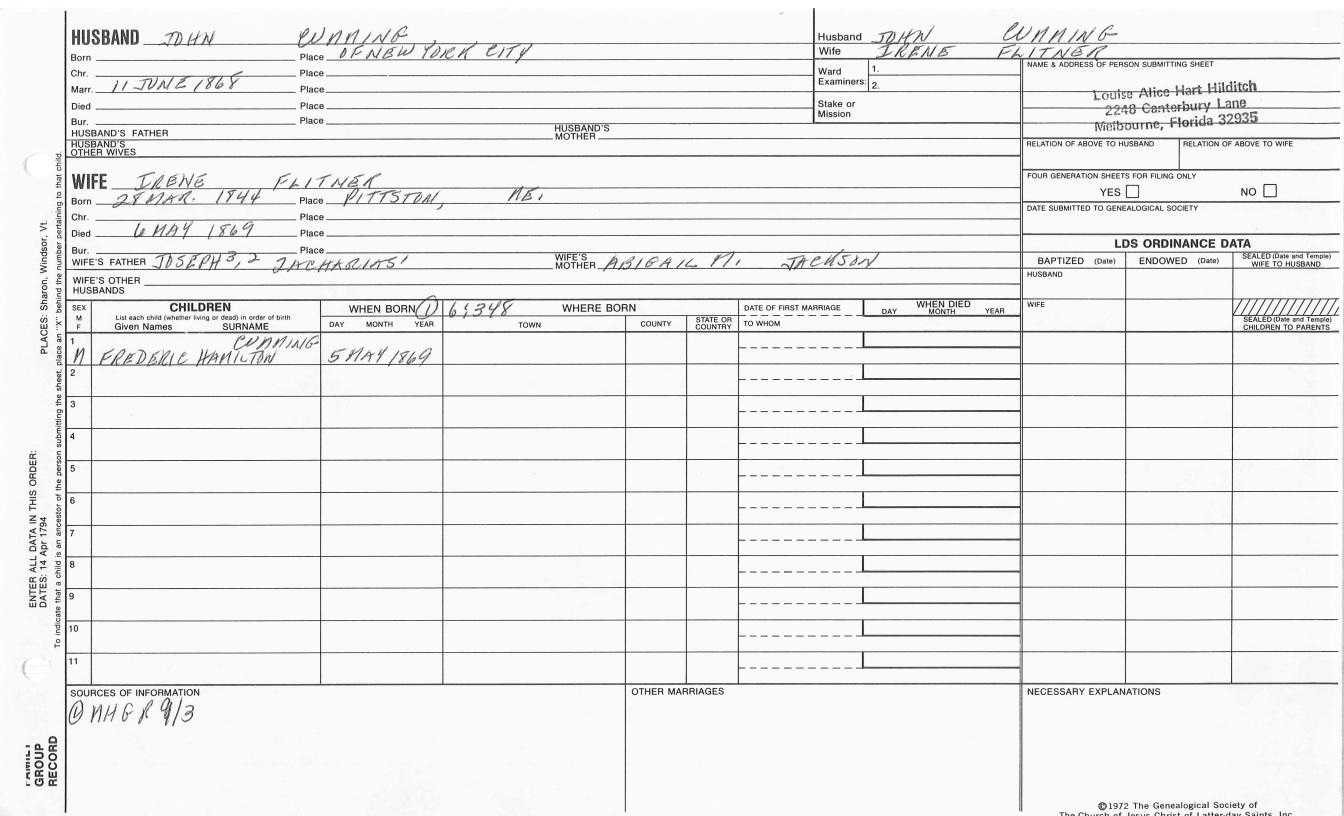 HUSBAND JOHN CUMMING
Born Place OF NEW YORK CITY
Chr. Place
Marr. 11 JUNE 1868 Place
Died Place
Bur. Place
HUSBAND'S FATHER HUSBAND'S MOTHER
HUSBAND'S OTHER WIVES
Husband JOHN CUMMING
Wife IRENE FLITNER
Ward Examiners: 1. 2.
Stake or Mission
NAME & ADDRESS OF PERSON SUBMITTING SHEET
Louise Alice Hart Hilditch
2248 Canterbury Lane
Melbourne, Florida 32935
RELATION OF ABOVE TO HUSBAND RELATION OF ABOVE TO WIFE
FOUR GENERATION SHEETS FOR FILING ONLY
YES NO
DATE SUBMITTED TO GENEALOGICAL SOCIETY
WIFE IRENE FLITNER
Born 28 MAR. 1844 Place PITTSTON, ME.
Chr. Place
Died 6 MAY 1869 Place
Bur. Place
WIFE'S FATHER JOSEPH 3, 2 ZACHARIAS 1 WIFE'S MOTHER ABIGAIL M. JACKSON
WIFE'S OTHER HUSBANDS
LDS ORDINANCE DATA
BAPTIZED (Date) ENDOWED (Date) SEALED (Date and Temple) WIFE TO HUSBAND
HUSBAND
WIFE
SEALED (Date and Temple) CHILDREN TO PARENTS
SEX M F
CHILDREN
List each child (whether living or dead) in order of birth
Given Names SURNAME
WHEN BORN ① 6:348 WHERE BORN
DAY MONTH YEAR TOWN COUNTY STATE OR COUNTRY
DATE OF FIRST MARRIAGE
TO WHOM
WHEN DIED
DAY MONTH YEAR
1
CUMMING
M FREDERIC HAMILTON 5 MAY 1869
2
3
4
5
6
7
8
9
10
11
SOURCES OF INFORMATION
① NHGR 9/3
OTHER MARRIAGES
NECESSARY EXPLANATIONS
©1972 The Genealogical Society of
The Church of Jesus Christ of Latter-day Saints, Inc.
PLACES: Sharon, Windsor, Vt.
ENTER ALL DATA IN THIS ORDER:
DATES: 14 Apr 1794
To indicate that a child is an ancestor of the person submitting the sheet, place an "X" behind the number pertaining to that child.
FAMILY
GROUP
RECORD